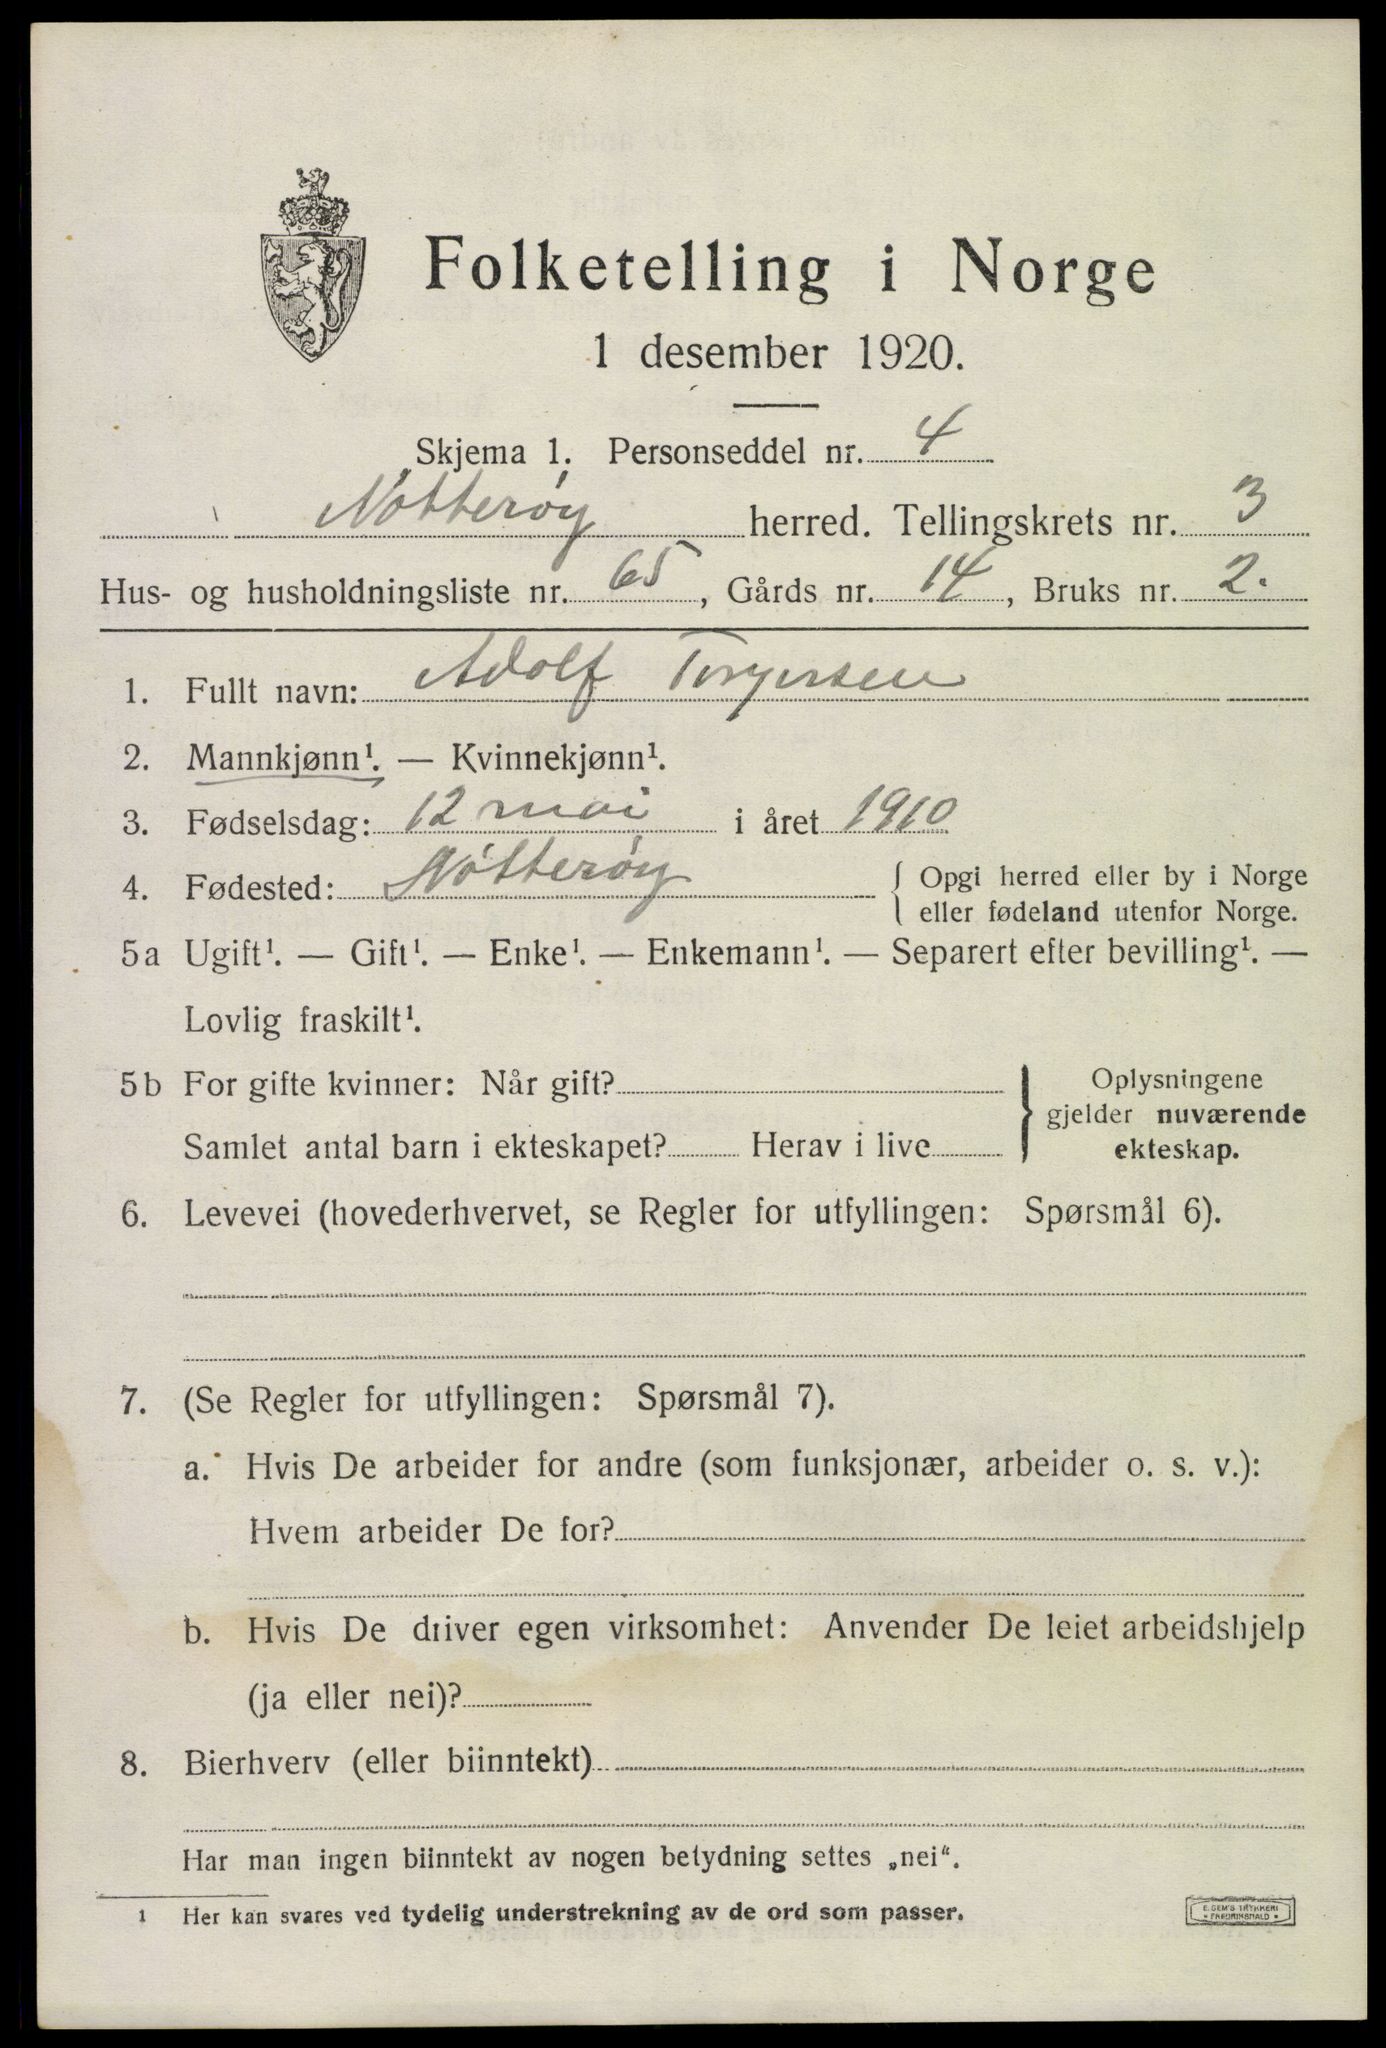 Folketelling i Norge
1 desember 1920.
Skjema 1. Personseddel nr. 4
Nøtterøy herred. Tellingskrets nr. 3
Hus- og husholdningsliste nr. 65, Gårds nr. 14, Bruks nr. 2.
1. Fullt navn: Adolf Torgersen
2. Mannkjønn¹. — Kvinnekjønn¹.
3. Fødselsdag: 12 mai i året 1910
4. Fødested: Nøtterøy { Opgi herred eller by i Norge
eller fødeland utenfor Norge.
5a Ugift¹. — Gift¹. — Enke¹. — Enkemann¹. — Separert efter bevilling¹. —
Lovlig fraskilt¹.
5b For gifte kvinner: Når gift?
Samlet antal barn i ekteskapet? Herav i live
} Oplysningene
gjelder nuværende
ekteskap.
6. Levevei (hovederhvervet, se Regler for utfyllingen: Spørsmål 6).
7. (Se Regler for utfyllingen: Spørsmål 7).
a. Hvis De arbeider for andre (som funksjonær, arbeider o. s. v.):
Hvem arbeider De for?
b. Hvis De driver egen virksomhet: Anvender De leiet arbeidshjelp
(ja eller nei)?
8. Bierhverv (eller biinntekt)
Har man ingen biinntekt av nogen betydning settes „nei“.
¹ Her kan svares ved tydelig understrekning av de ord som passer.
E. SEM'S TRYKKERI
• FREDRIKSHALD •